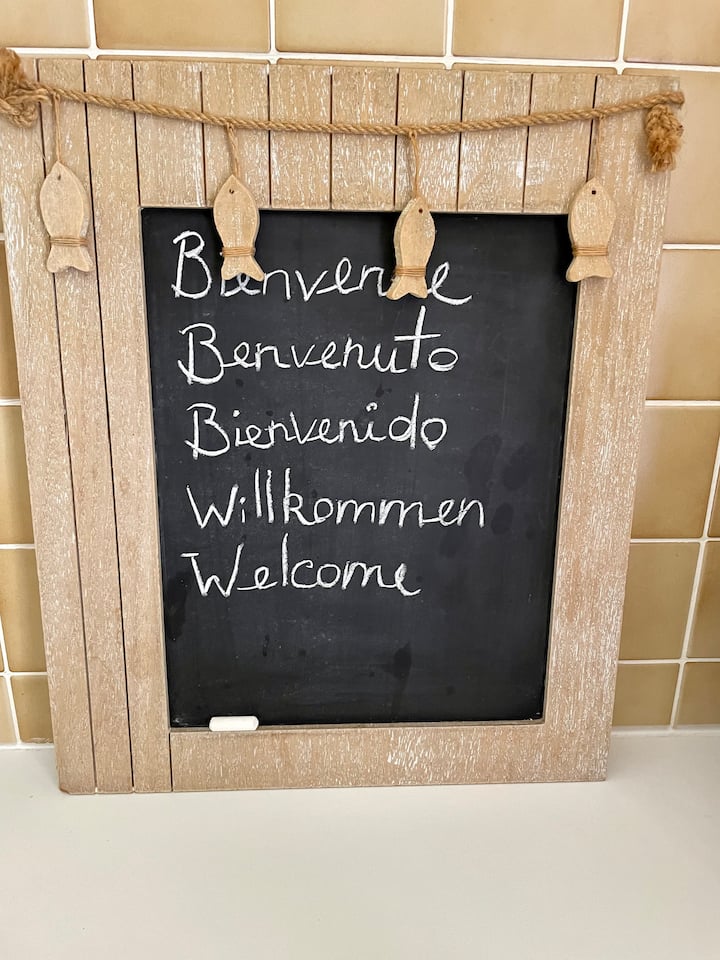 Bienvenue
Benvenuto
Bienvenido
Willkommen
Welcome